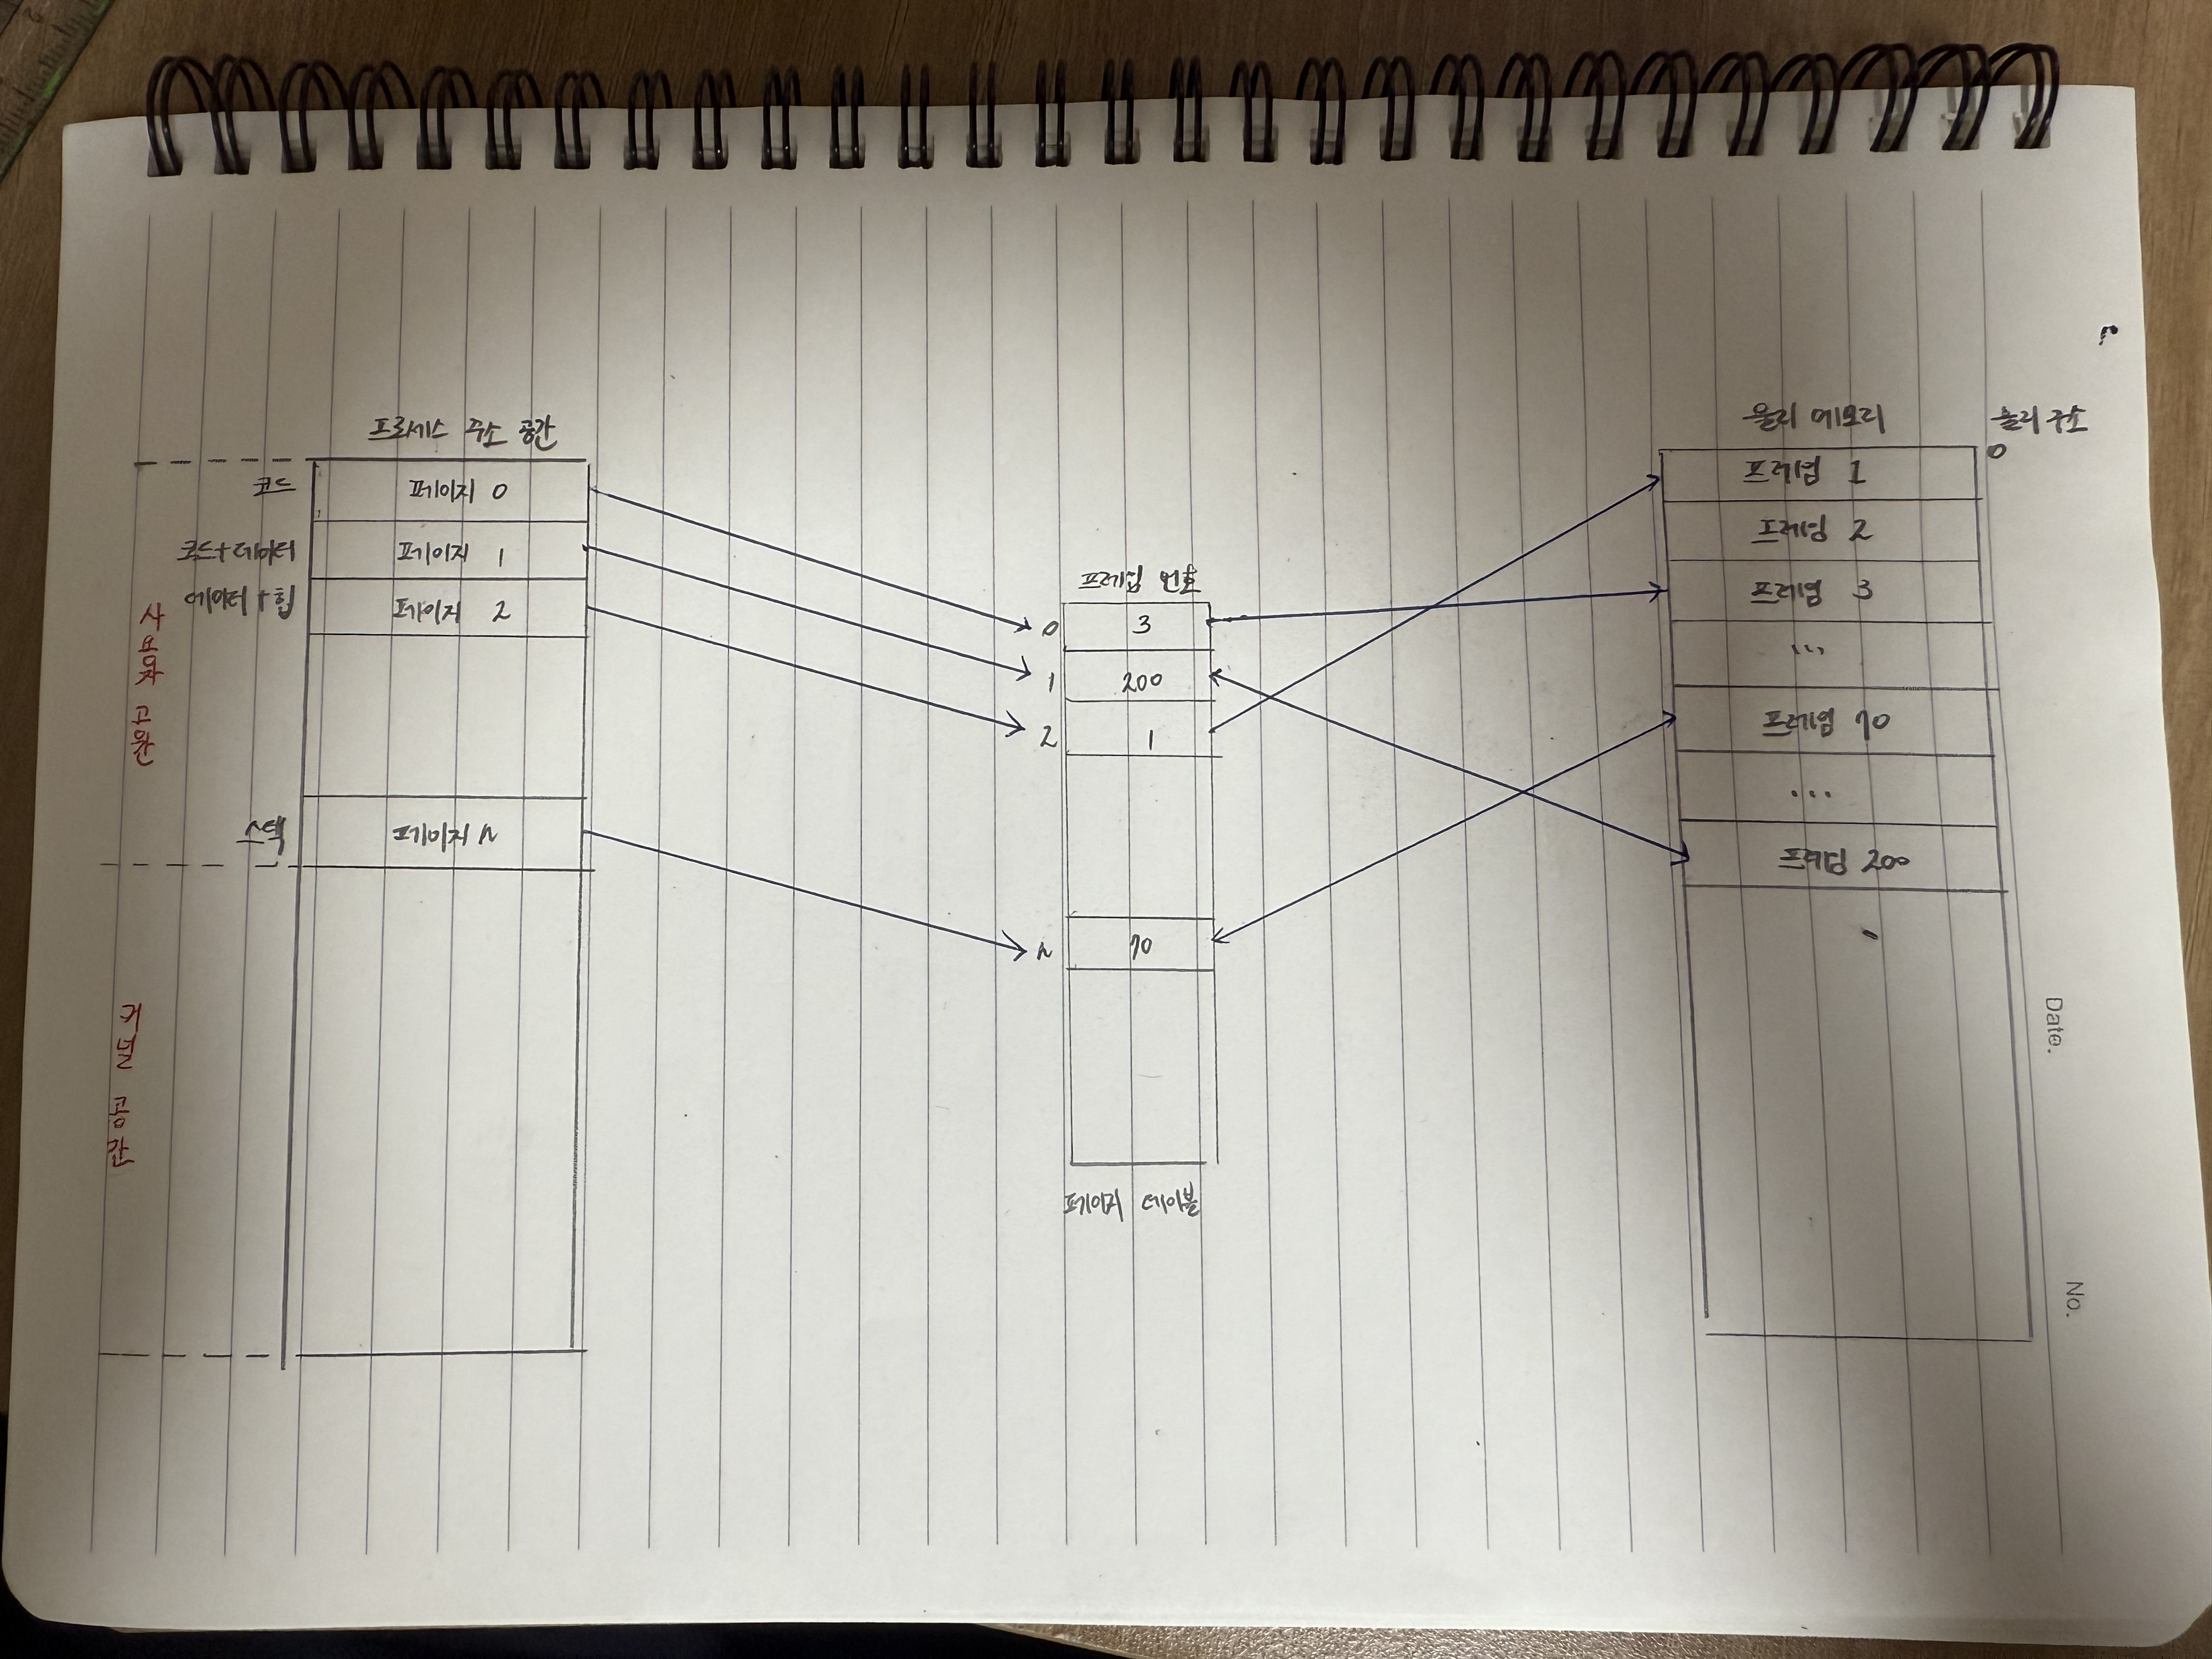 프로세스 주소 공간
코드
페이지 0
코드+데이터
페이지 1
데이터+힙
페이지 2
사용자 공간
스택
페이지 n
커널 공간
프레임 번호
0 3
1 200
2 1
n 70
페이지 테이블
물리 메모리
물리 주소
0
프레임 1
프레임 2
프레임 3
...
프레임 70
...
프레임 200
Date.
No.